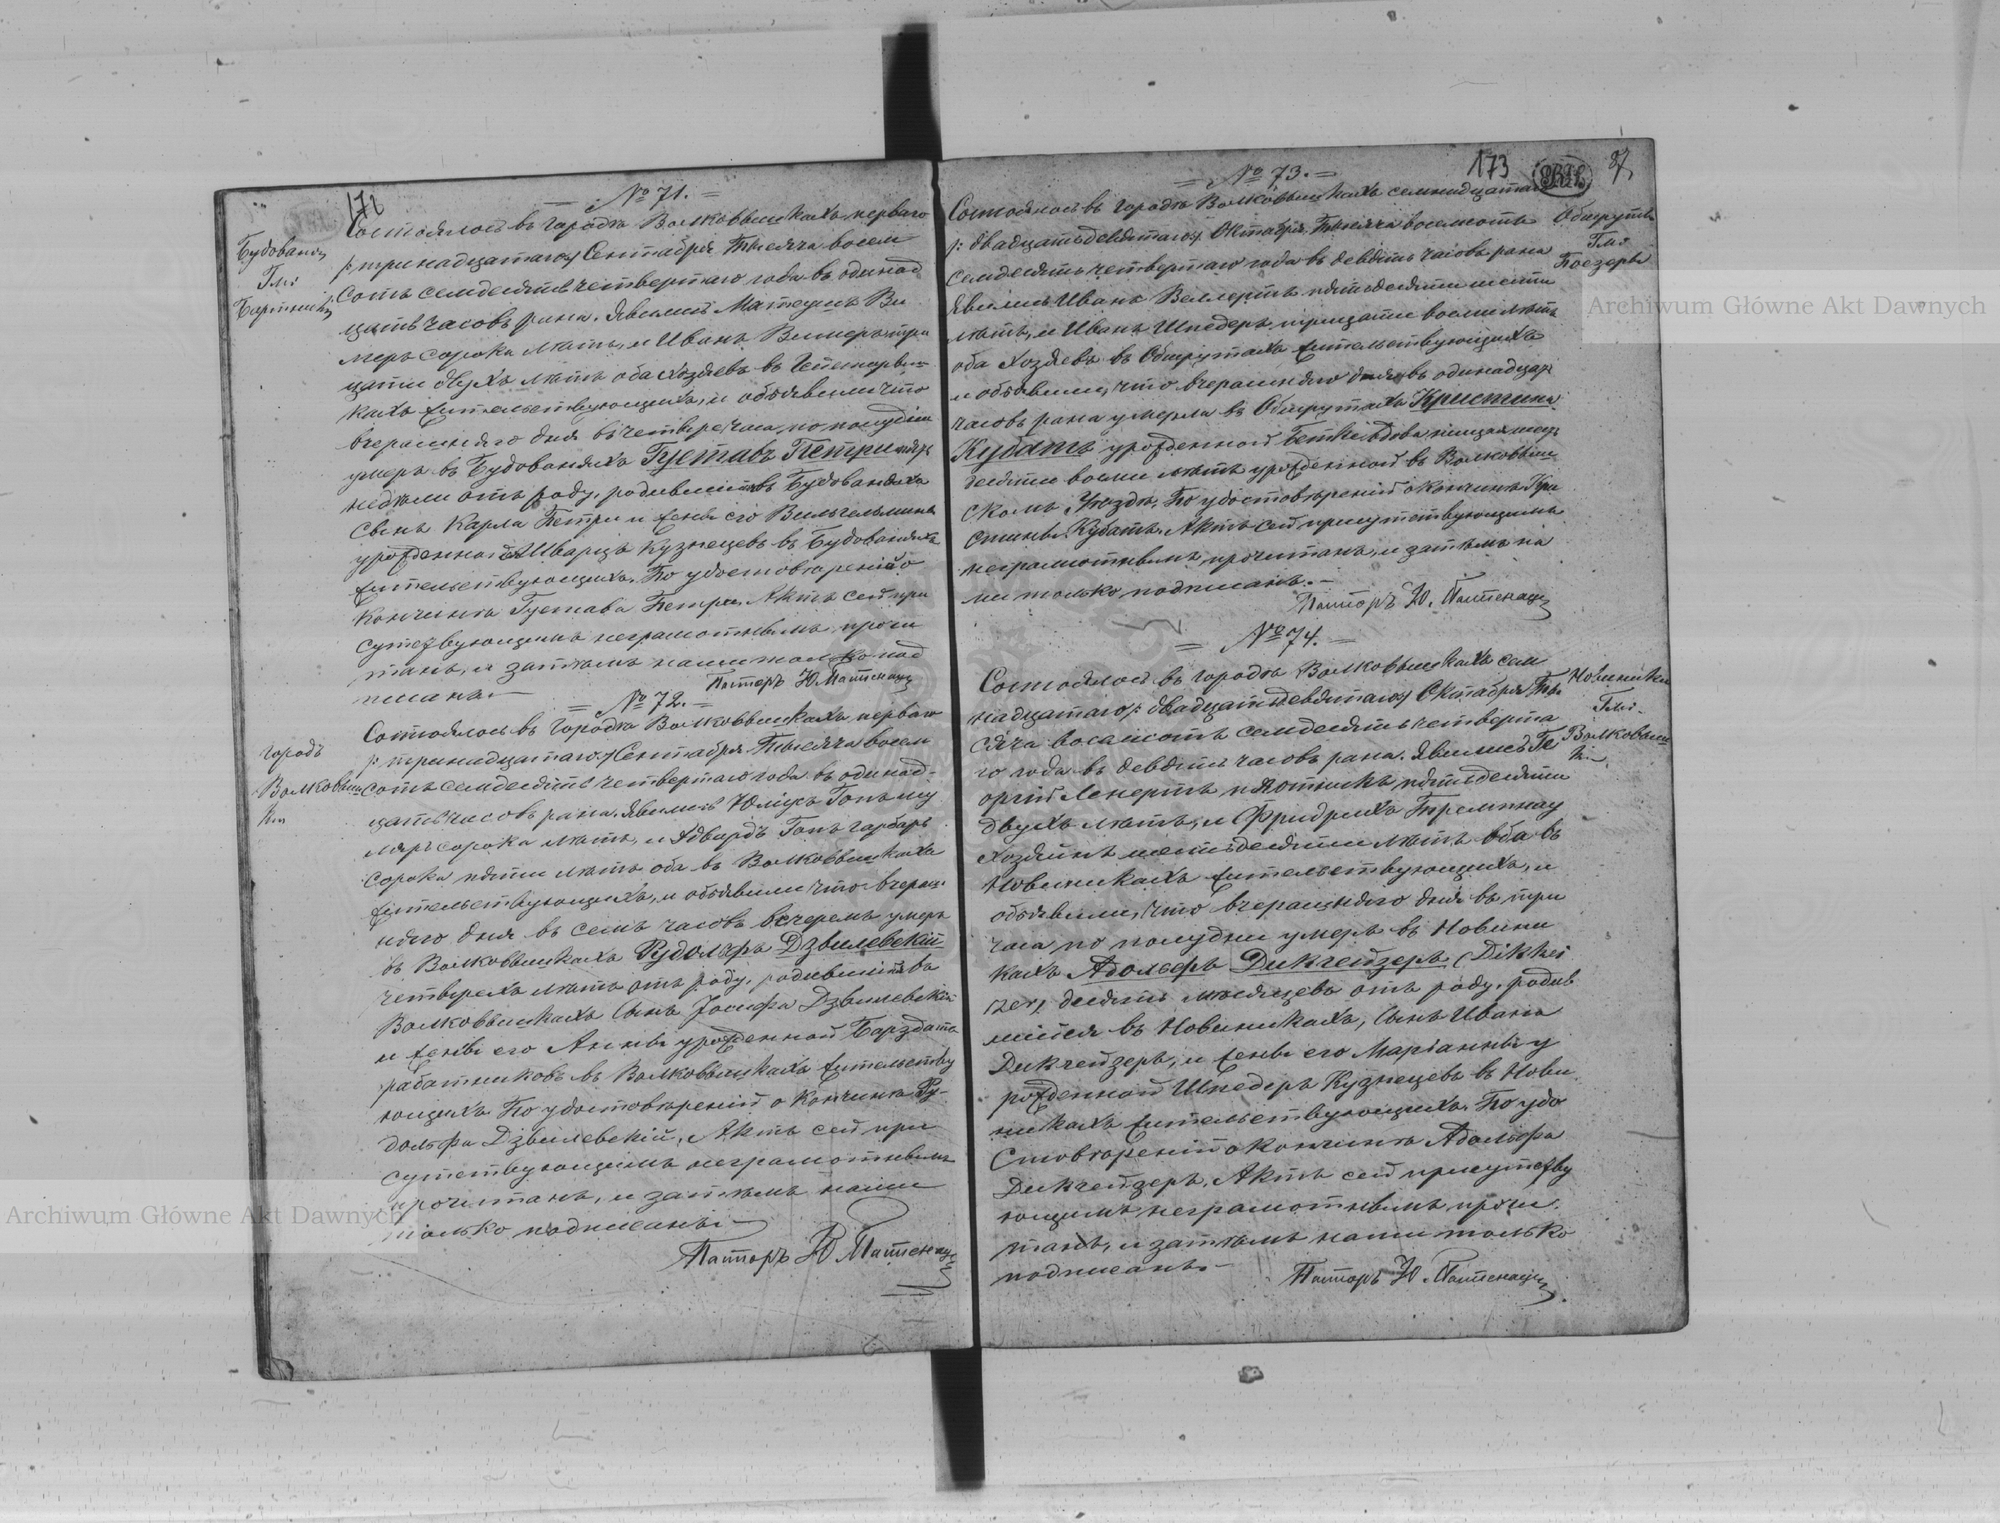 172
= № 71. =
Будованы
Гм:
Бартники
Состоялось въ городѣ Волковышкахъ перваго
/: тринадцатаго:/ Сентября Тысяча восем
сотъ семдесятъ четвертаго года въ одинад
цать часовъ рана. Явились Матеушъ Ви
меръ сорока лѣтъ, и Иванъ Вимеръ три
цати двухъ лѣтъ оба хозяевъ въ
кахъ жительствующихъ, и объявили что
вчерашняго дня въ четвере часа по полудни
умеръ въ Будованяхъ Густавъ Петри
недѣли отъ роду, родившійся въ Будованяхъ
Сынъ Карла Петри и жены его Вильгельмины
урожденной Шварцъ Кузнецевъ въ Будованяхъ
жительствующихъ. По удостовѣреніи о
кончинѣ Густава Петри, Актъ сей при
сутствующимъ неграмотнымъ прочи
танъ, и затѣмъ нами только под
писанъ.—
Пасторъ Ю. Пастенаци
= № 72. =
городъ
Волковыш
ки
Состоялось въ городѣ Волковышкахъ перваго
/: тринадцатаго:/ Сентября Тысяча восем
сотъ семдесятъ четвертаго года въ одинад-
цать часовъ рана. Явились Юліусъ Гопъ
ляръ сорока лѣтъ, и Адвардъ Гопъ гарбаръ
сорока пяти лѣтъ оба въ Волковышкахъ
жительствующихъ, и объявили что вчераш-
няго дня въ семъ часовъ вечеремъ умеръ
въ Волковышкахъ Рудольфъ Дзвилевскій
четверехъ лѣтъ отъ роду, родившійся въ
Волковышкахъ Сынъ Іосифа Дзвилевскій
и жены его Анны урожденной Барздатъ
работниковъ въ Волковышкахъ жительству
ющихъ По удостовѣреніи о кончинѣ Ру-
дольфа Дзвилевскій, Актъ сей при
сутствующимъ неграмотнымъ
прочитанъ, и затѣмъ нами
только подписанъ.—
Пасторъ Ю. Пастенаци
173
87
= № 73. =
Обшруты
Гм:
Поезеры
Состоялось въ городѣ Волковышкахъ семнадцатаго
/: двадцатьдевятаго:/ Октября Тысяча восемсотъ
семдесятъ четвертаго года въ девять часовъ рана
Явились Иванъ Веллертъ пятидесяти шести
лѣтъ, и Иванъ Шнедеръ трицати восми лѣтъ
оба хозяевъ въ Обшрутахъ жительствующихъ
и объявили, что вчерашняго дня въ одинадцат
часовъ рана умерла въ Обшрутахъ Кристина
Кубатъ урожденной нищая
десяти восми лѣтъ урожденной въ Волковыш
скомъ Уѣздѣ. По удостовѣреніи о кончинѣ Кри
стины Кубатъ, Актъ сей присутствующимъ
неграмотнымъ прочитанъ, и затѣмъ на
ми только подписанъ.—
Пасторъ Ю. Пастенаци
= № 74. =
Новиники
Гм:
Волковыш
ки
Состоялось въ городѣ Волковышкахъ сем
надцатаго /: двадцатьдевятаго:/ Октября Ты
сяча восемсотъ семдесятъ четверта
го года въ девять часовъ рана. Явились Ге
оргій Ленертъ плотникъ пятидесяти
двухъ лѣтъ, и Фридрихъ Тремпнау
хозяинъ шестьдесяти лѣтъ оба въ
Новиникахъ жительствующихъ, и
объявили, что вчерашняго дня въ три
часа по полудни умеръ въ Новини
кахъ Адольфъ Дикчейзеръ (Dikkei
zer) десять мѣсяцевъ отъ роду, родив
шійся въ Новиникахъ, Сынъ Ивана
Дикчейзеръ, и жены его Маріанны у
рожденной Шнедеръ Кузнецевъ въ Нови
никахъ жительствующихъ. По удо
стовѣреніи о кончинѣ Адольфа
Дикчейзеръ, Актъ сей присутству
ющимъ неграмотнымъ прочи.
танъ, и затѣмъ нами только
подписанъ.—
Пасторъ Ю. Пастенаци
Archiwum Główne Akt Dawnych
Archiwum Główne Akt Dawnych